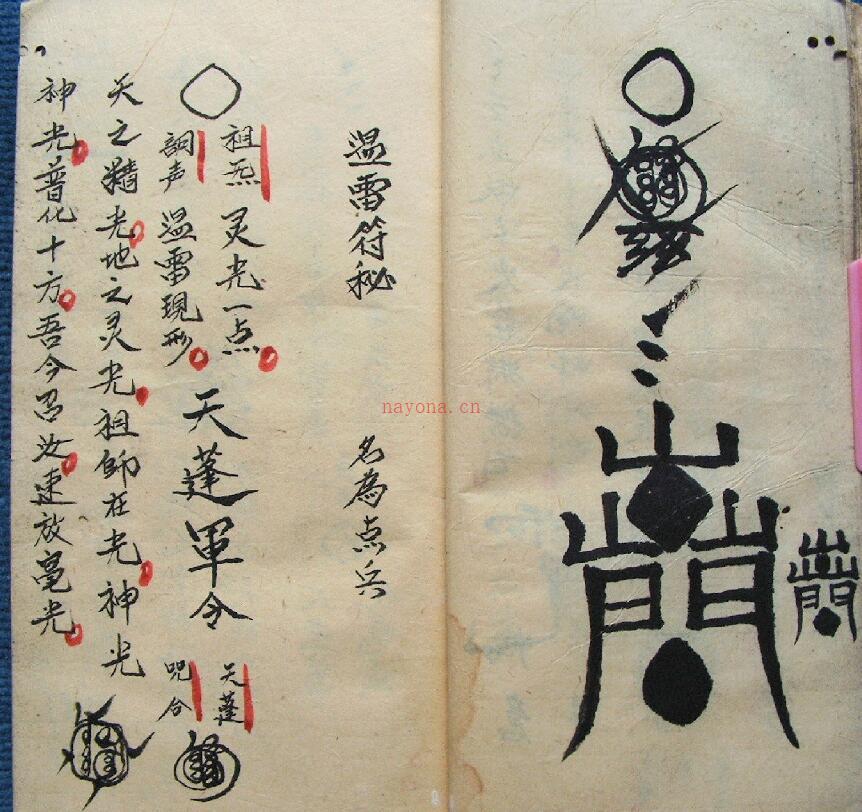 温雷符秘 名為点兵
祖炁 灵光一点
声 温雷現形
天蓬軍令
天蓬
咒合
天之精光地之灵光祖師在光神光
神光普化十方吾今召汝速放毫光
nayona.cn